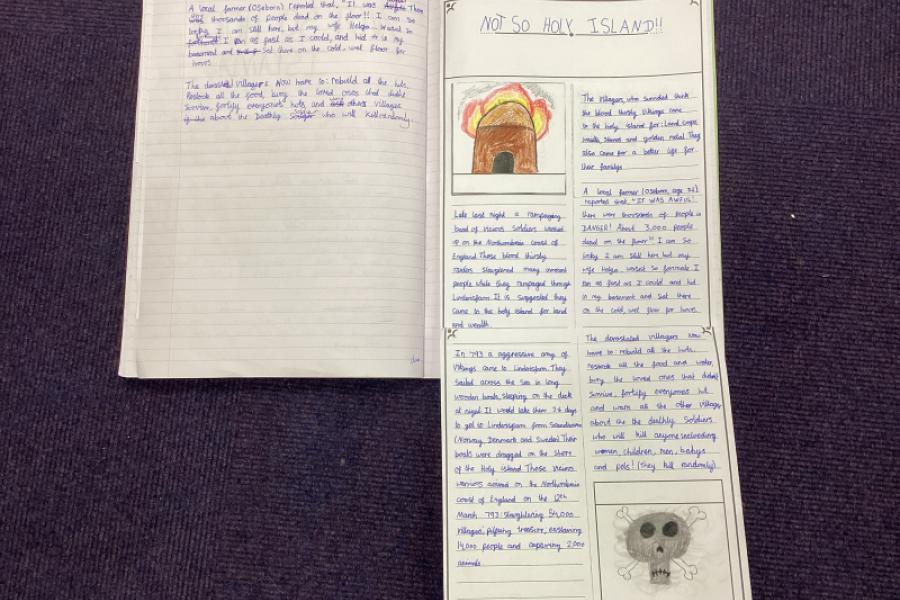 A local farmer (Oseborn) reported that, "It was Than
was thousands of people dead on the floor!! I am so
lucky I am still here, but my wife Helga wasnt so
I ran as fast as I could, and hid in my
basement and sat there on the cold, wet floor for
hours.
The devasted villagers Now have to: rebuild all the huts,
Restock all the food, bury the loved ones that didnt
Survive, fortify everyones huts and other villages
about the Deathly who will Kill randomly.
NOT SO HOLY ISLAND!!
Late last night a rampaging
band of vicious Soldiers washed
up on the Northumbria coast of
England. These blood thirsty
raiders slaughtered many innocent
people while they rampaged through
Lindersfarm. It is suggested they
came to the holy island for land
and wealth.
In 793 a aggressive army of
Vikings came to Lindersfarm. They
sailed across the sea in long
wooden boats, sleeping on the deck
at night. It would take them days
to get to Lindersfarm from Scandinavia
(Norway, Denmark and Sweden). Their
boats were dragged on the shore
of the Holy island. Those vicious
warriors arrived on the Northumbria
coast of England on the 12th
March 793: Slaughtering 54,000
villages, treasure, enslaving
14,000 people and capturing 2,000
animals.
The villagers, who survived think
the blood thirsty Vikings came
to the holy island for: Land, crops
wealth, Slaves and golden metal. They
also came for a better life for
their familys.
A local farmer (Oseborn, age 32)
reported that, "IT WAS AWFUL!
there were thousands of people in
DANGER! About 3,000 people
dead on the floor!! I am so
lucky I am still here, but my
wife Helga wasnt so I
ran as fast as I could and hid
in my basement and sat there
on the cold, wet floor for hours.
The devastated villagers Now
have to: rebuild all the huts,
restock all the food and water,
bury the loved ones that didnt
Survive, fortify everyones hut
and warn all the other villages
about the the deathly Soldiers
who will kill anyone
women, children, men, babys
and pets! (They kill randomly)